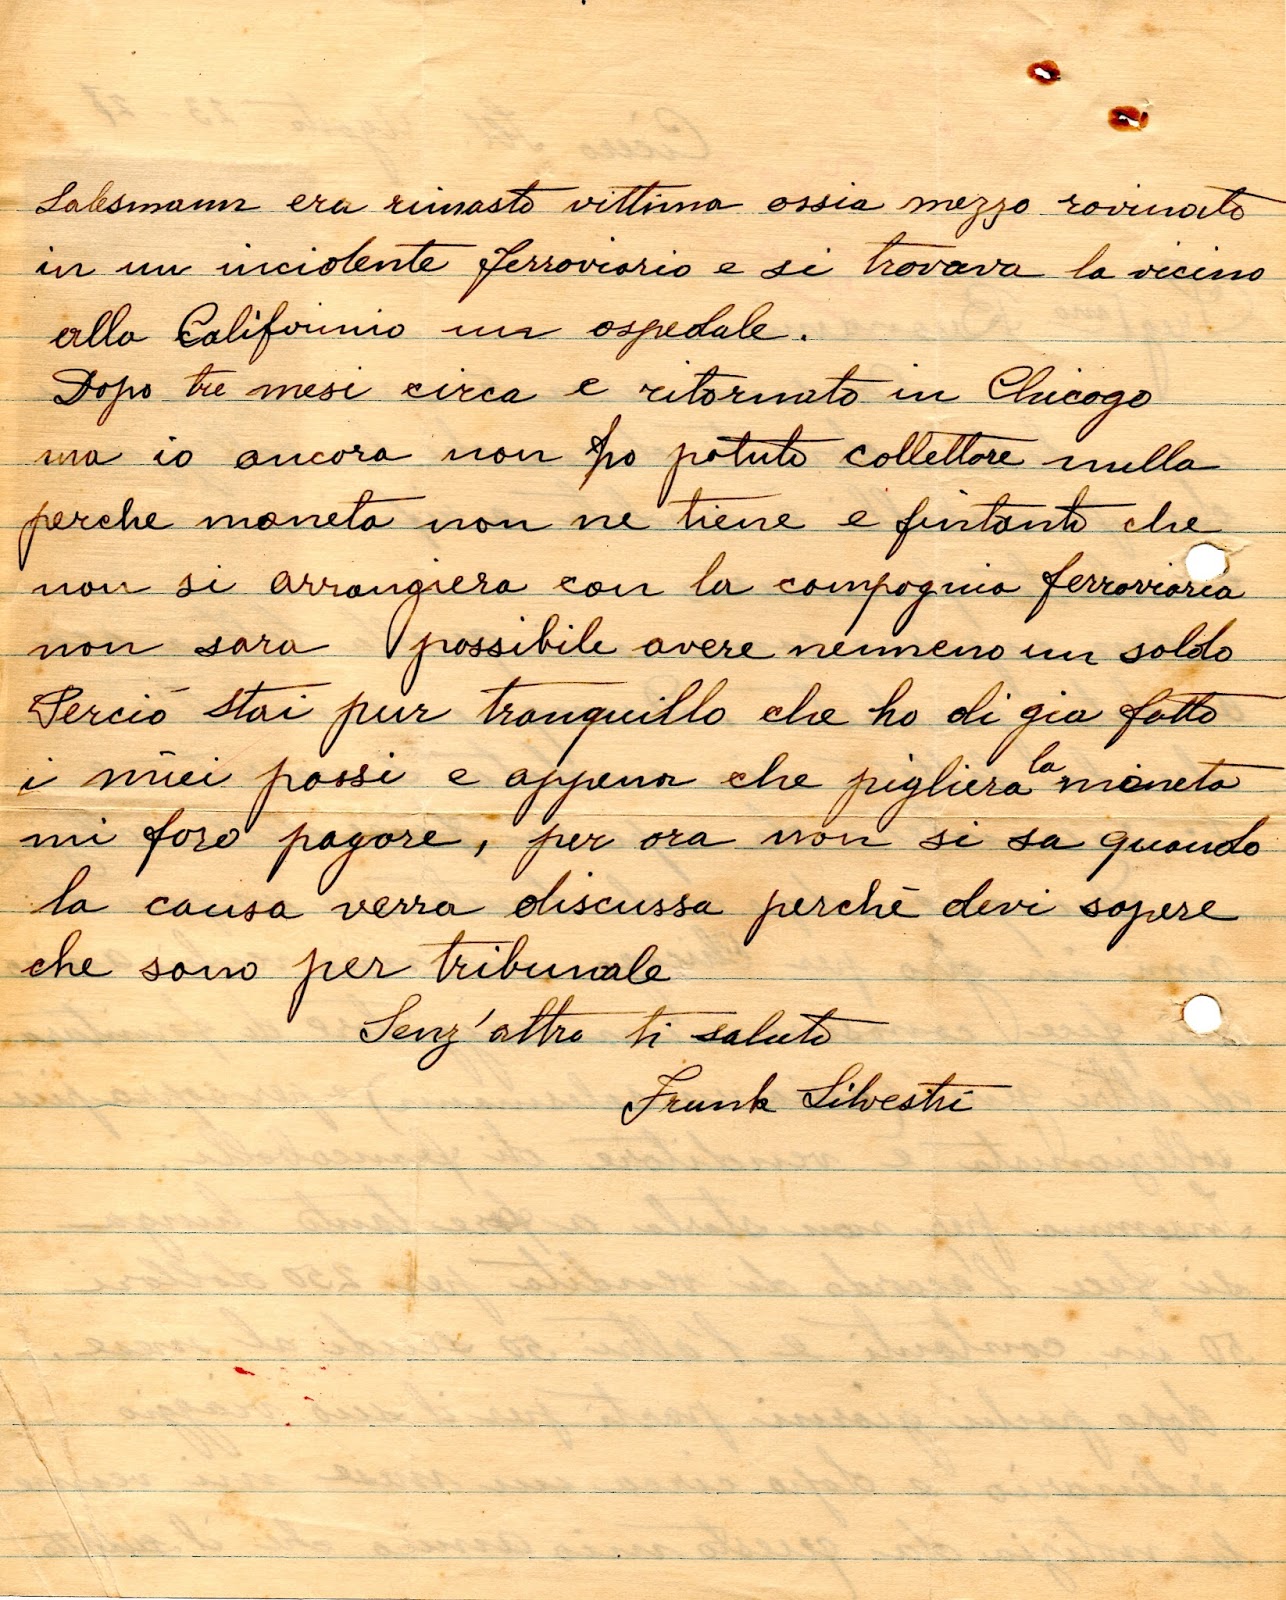 Salesmann era rimasto vittima ossia mezzo rovinato
in un incidente ferroviario e si trovava la vicino
alla California un ospedale.
Dopo tre mesi circa e ritornato in Chicago
ma io ancora non ho potuto collettare nulla
perche moneta non ne tiene e fintanto che
non si arrangiera con la compagnia ferroviaria
non sara possibile avere nemmeno un soldo
Perciò stai pur tranquillo che ho di gia fatto
i miei passi e appena che pigliera la moneta
mi faro pagare, per ora non si sa quando
la causa verra discussa perchè devi sapere
che sono per tribunale
Senz'altro ti saluto
Frank Silvestri